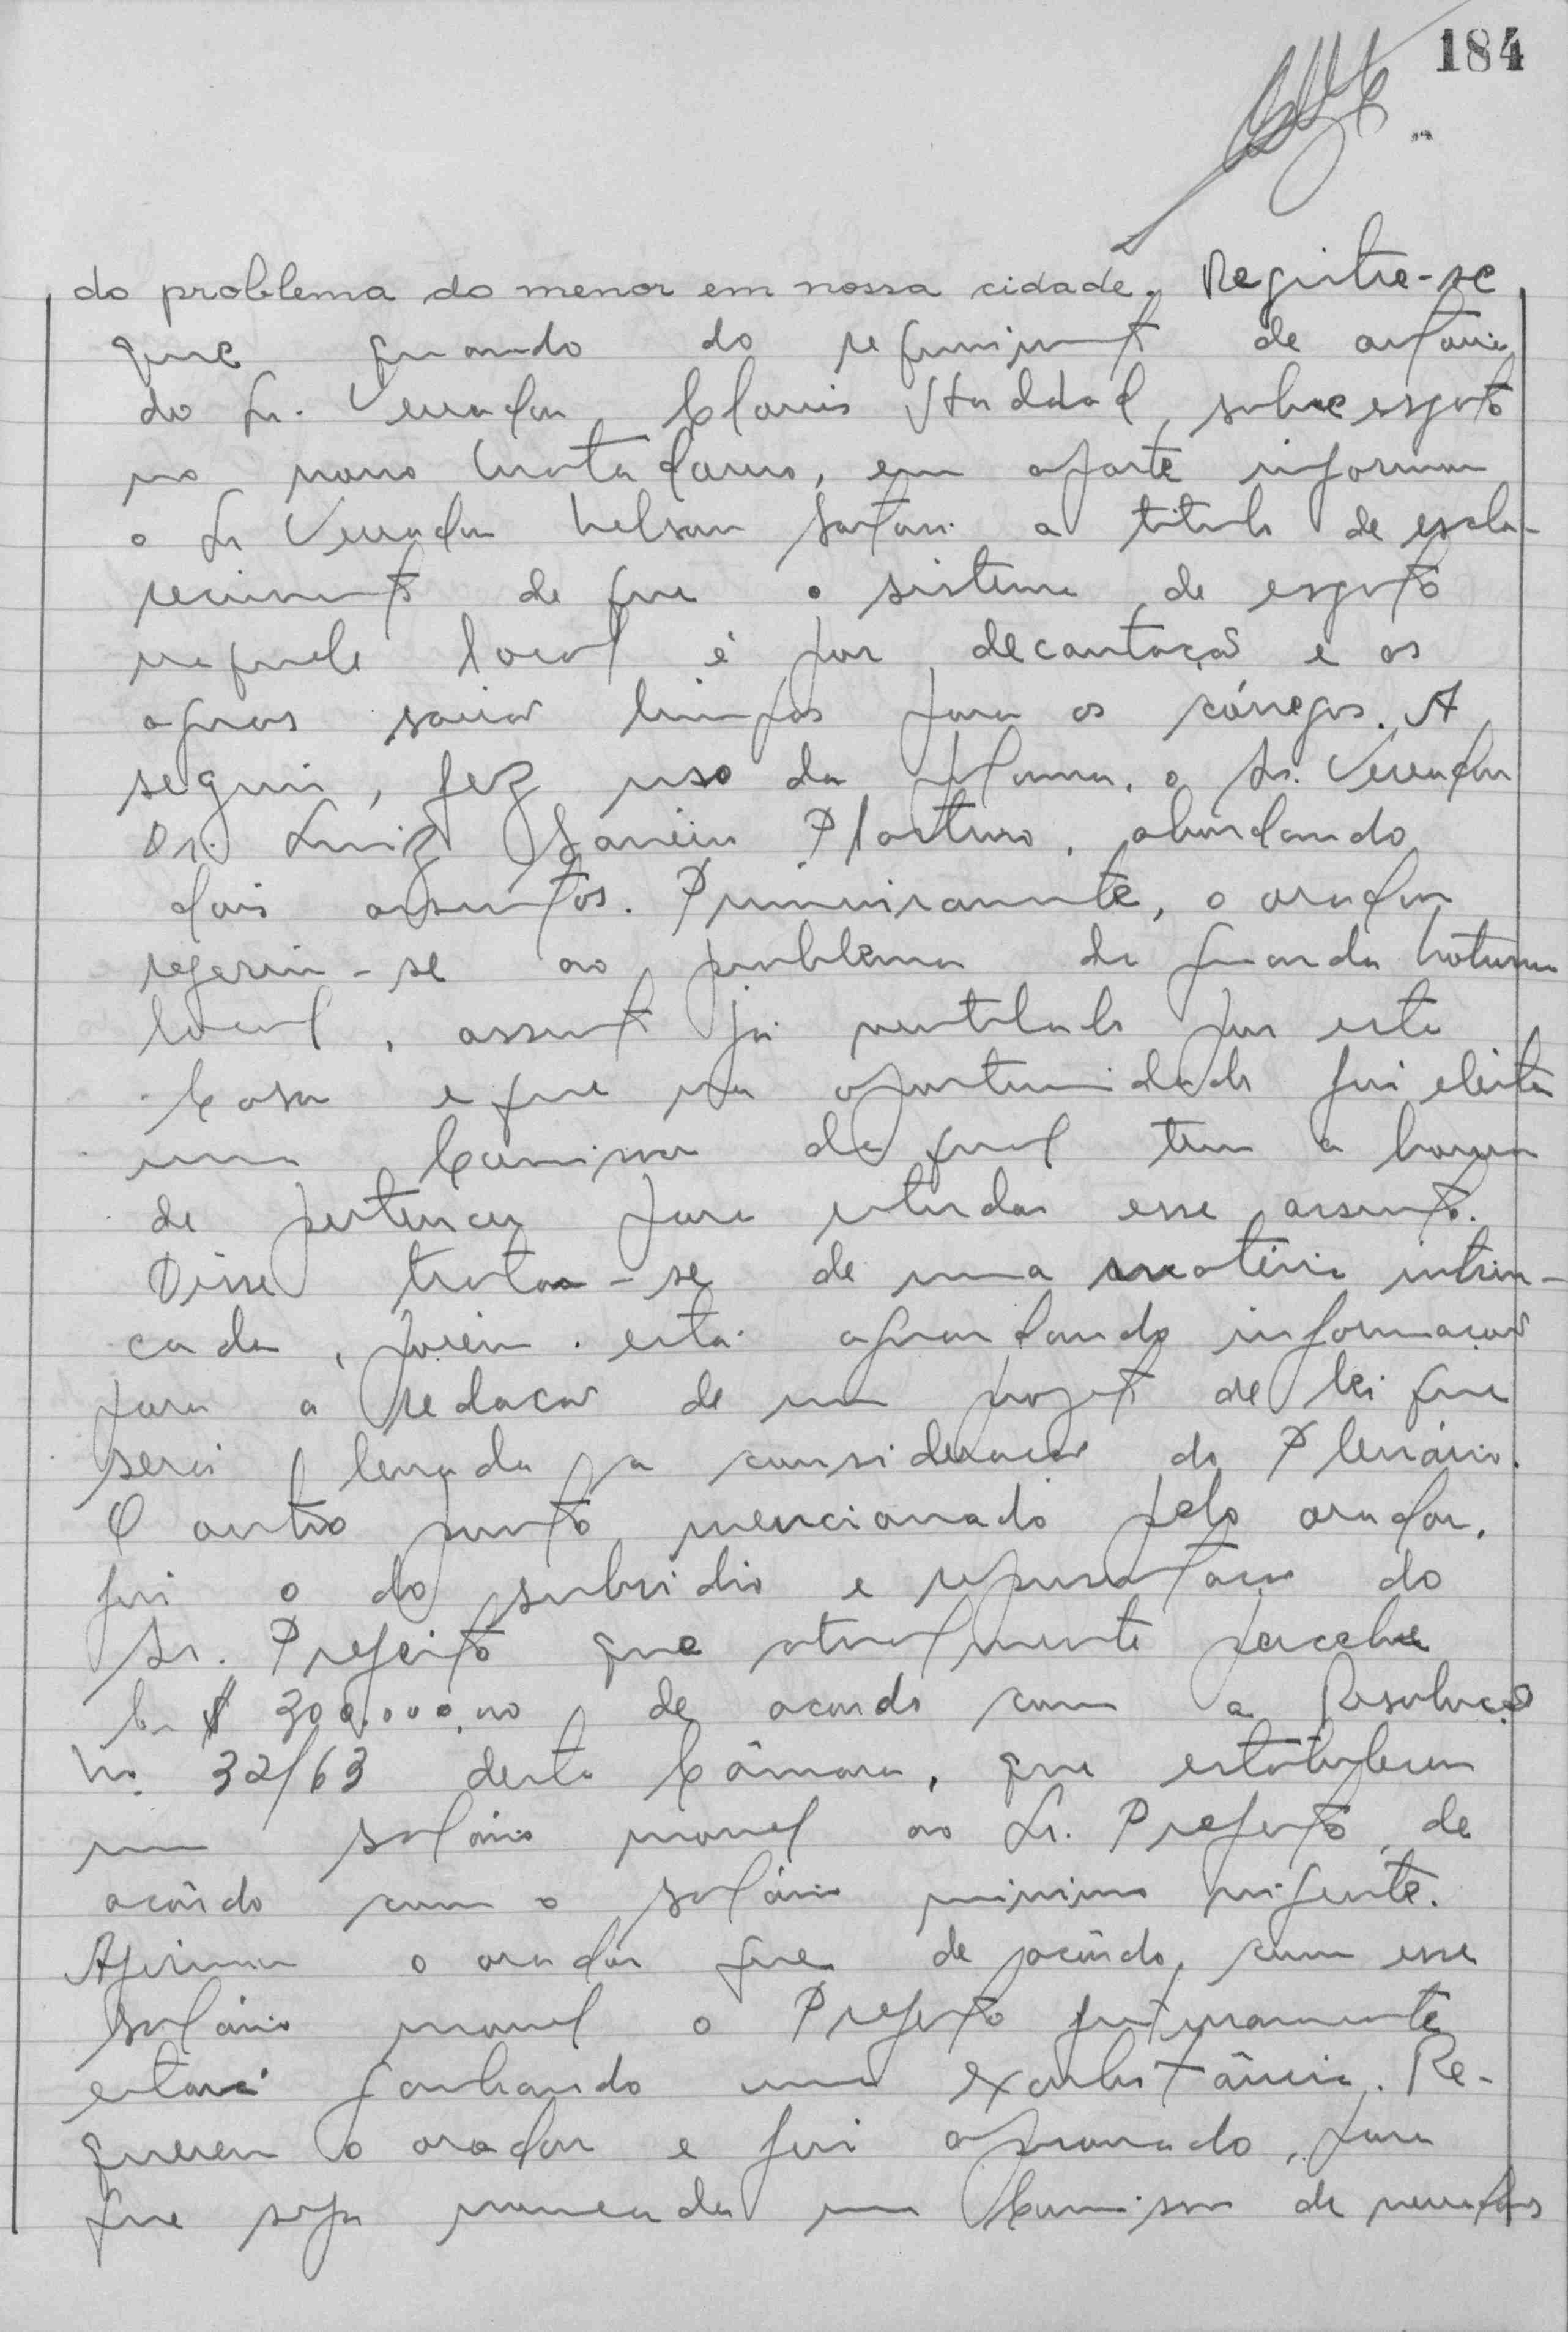 184
do problema do menor em nossa cidade. Registre-se
que quando do requerimento de autoria
do Sr. Vereador Clovis Haddad, sobre esgoto
no novo matadouro, em aparte informou
o Sr Vereador Nelson a titulo de escla-
recimento de que o sistema de esgoto
naquele local é por decantação e as
aguas sairão limpas para os córregos. A
seguir, fez uso da palavra, o Sr. Vereador
Dr. Luiz, abordando
dois assuntos. Primeiramente, o orador
referiu-se ao problema da guarda noturna
local, assunto já ventilado por esta
Casa e que na oportunidade foi eleita
uma Comissão da qual tem a honra
de pertencer para estudar esse assunto.
Disse tratar-se de uma matéria intrin-
cada, porém está aguardando informações
para a redação de um projeto de lei que
será levada a consideração do Plenário.
O outro ponto mencionado pelo orador,
foi o do subsidio e representação do
Sr. Prefeito que atualmente percebe
Cr$ 300.000,00 de acordo com a Resolução
No. 32/63 desta Câmara, que estabeleceu
um salário movel ao Sr. Prefeito, de
acôrdo com o salário minimo vigente.
Afirmou o orador que de acôrdo com esse
salário movel o Prefeito futuramente
estará ganhando uma exorbitância. Re-
quereu o orador e foi aprovado, para
que seja nomeada uma Comissão de vereadores